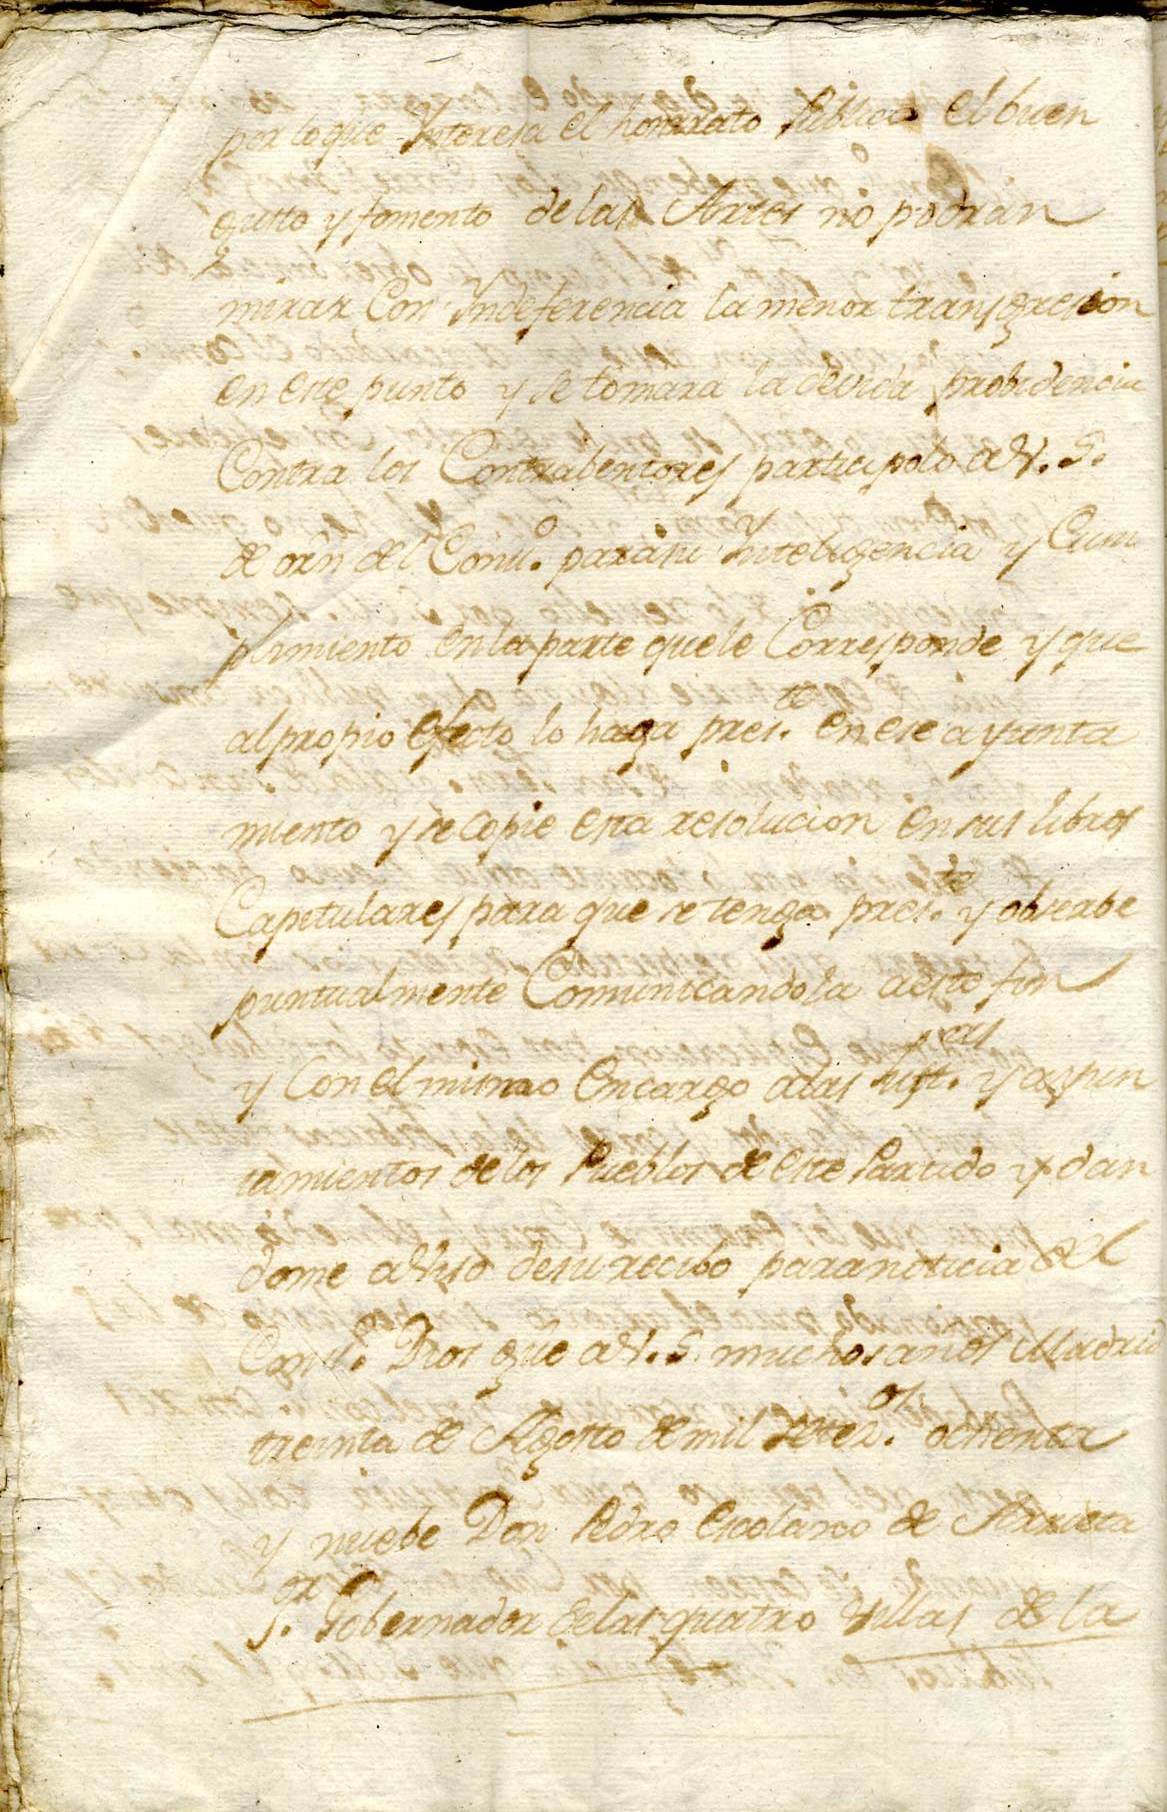 por lo que Interesa el hornato Publico el buen
gusto y fomento de las Artes no podran
mirar Con Indeferencia la menor transgresion
en este punto y se tomara la devida probidencia
Contra los Contrabentores participolo a V. S.
de orn del Conso. para su Inteligencia y Cum
plimiento en la parte que le Corresponde y que
al propio efecto lo haga preste. en ese ayunta
miento y se copie esta resolucion en sus libros
Capetulares para que se tenga preste. y obserbe
puntualmente Comunicandola a este fin
y Con el mismo encargo a las Justas. y ayun
tamientos de los Pueblos de este Partido y dan
dome abiso de su recibo para noticia del
Conso. Dios gue a V. S. muchos años Madrid
treinta de Agosto de mil setezos. ochenta
y nuebe Don Pedro Escolano de Arrieta
Sor. Gobernador de las quatro Villas de la